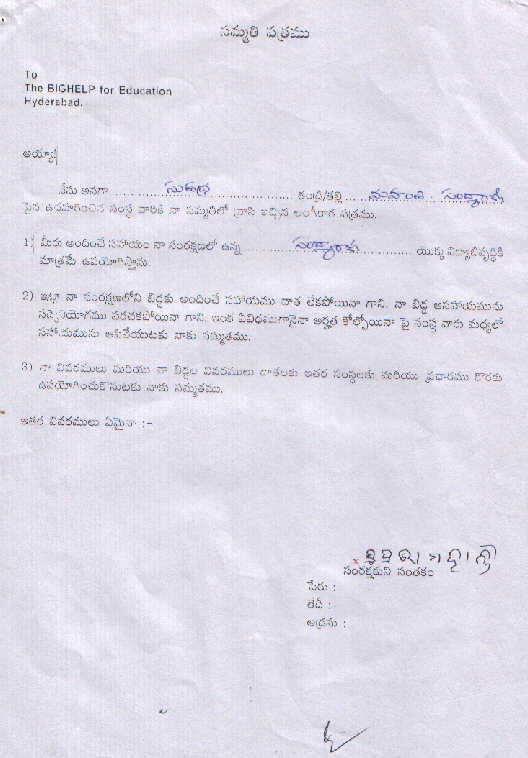 సమ్మతి పత్రము
To
The BIGHELP for Education
Hyderabad.
అయ్యా!
నేను అనగా .......... సుభద్ర .......... తండ్రి/తల్లి ..........
పైన ఉదహరించిన సంస్థ వారికి నా సమ్మతిలో వ్రాసి ఇచ్చిన అంగీకార పత్రము.
1) మీరు అందించే సహాయం నా సంరక్షణలో ఉన్న .......... యొక్క విద్యాభివృద్ధికి
మాత్రమే ఉపయోగిస్తాను.
2) ఇట్లా నా సంరక్షణలోని బిడ్డకు అందించే సహాయము దాత లేకపోయినా గాని, నా బిడ్డ ఆసహాయమును
సద్వినియోగము పరచకపోయినా గాని, ఇంక ఏవిధముగానైనా అర్హత కోల్పోయినా పై సంస్థ వారు మధ్యలో
సహాయమును ఆపివేయుటకు నాకు సమ్మతము.
3) నా వివరములు మరియు నా బిడ్డల వివరములు దాతలకు ఇతర సంస్థలకు మరియు ప్రచారము కొరకు
ఉపయోగించుకొనుటకు నాకు సమ్మతము.
ఇతర వివరములు ఏమైనా :-
సంరక్షకుని సంతకం
పేరు :
తేదీ :
అడ్రసు :